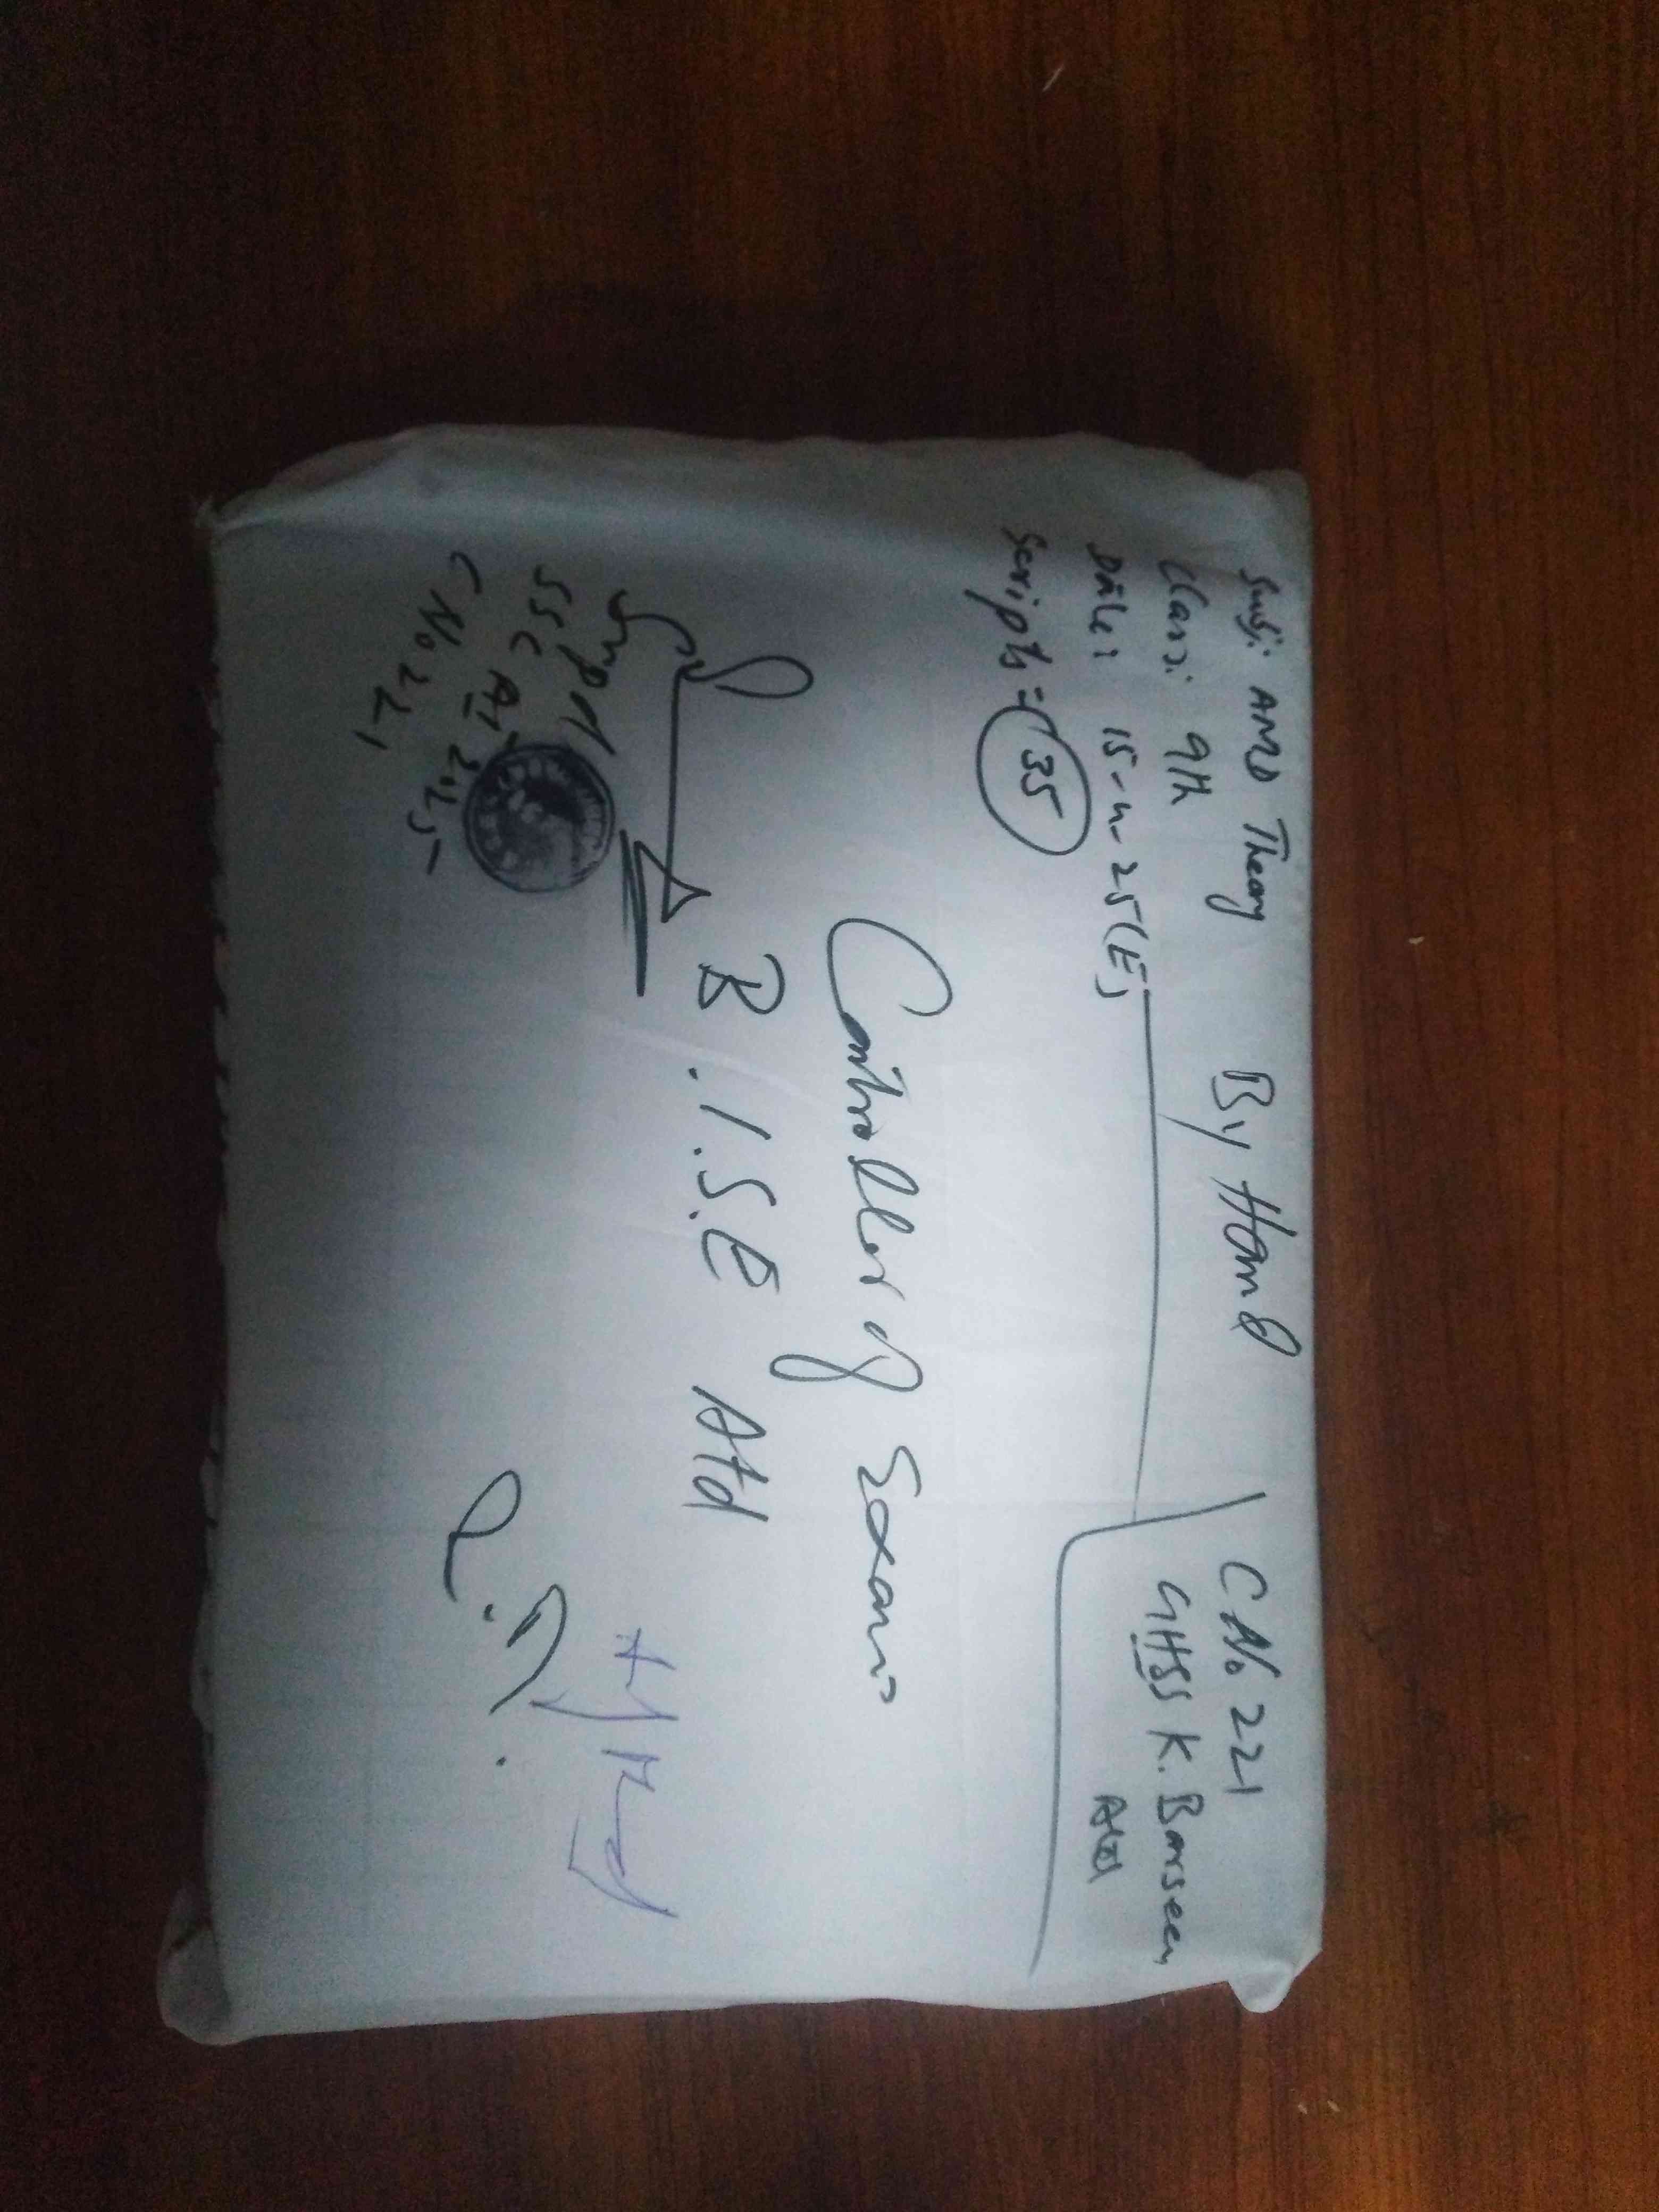 Subj: AMD Theory
Class: 9th
Date: 15-4-25(E)
Scripts = 35
By Hand
C No 221
GHSS K. Barseen
Atd
Controller of Exams
B.I.S.E Atd
Supdt
SSC A-I 2025
C No 221